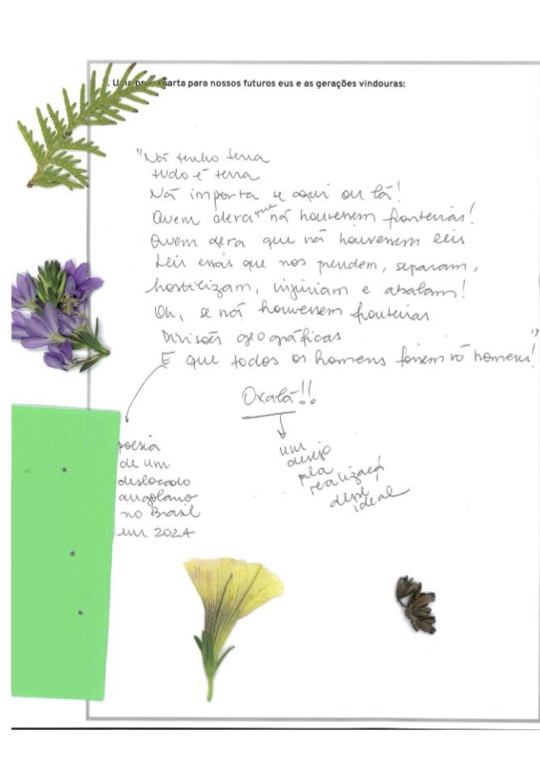 Uma carta para nossos futuros eus e as gerações vindouras:
"Nã tenho terra
tudo é terra
Nã importa se aqui ou lá!
Quem dera que nã houvessem fronteiras!
Quem dera que nã houvessem leis
Leis essas que nos prendem, separam,
hostilizam, injuriam e abalam!
Oh, se nã houvessem fronteiras
Divisões geográficas
E que todos os homens fossem só homens!"
Oxalá!!
poesia
de um
deslocado
angolano
no Brasil
em 2024
um
desejo
pela
realizaçã
desse
ideal